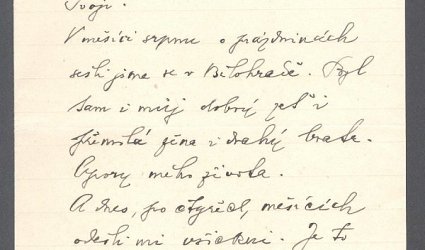 Tvoji.
V měsíci srpnu o prázdninách
sešli jsme se v Bělohradě. Byl
tam i můj dobrý zeť i
přemilá žena i drahý bratr.
Opory mého života.
A dnes, po čtyřech měsících
odešli mi všickni. Je to